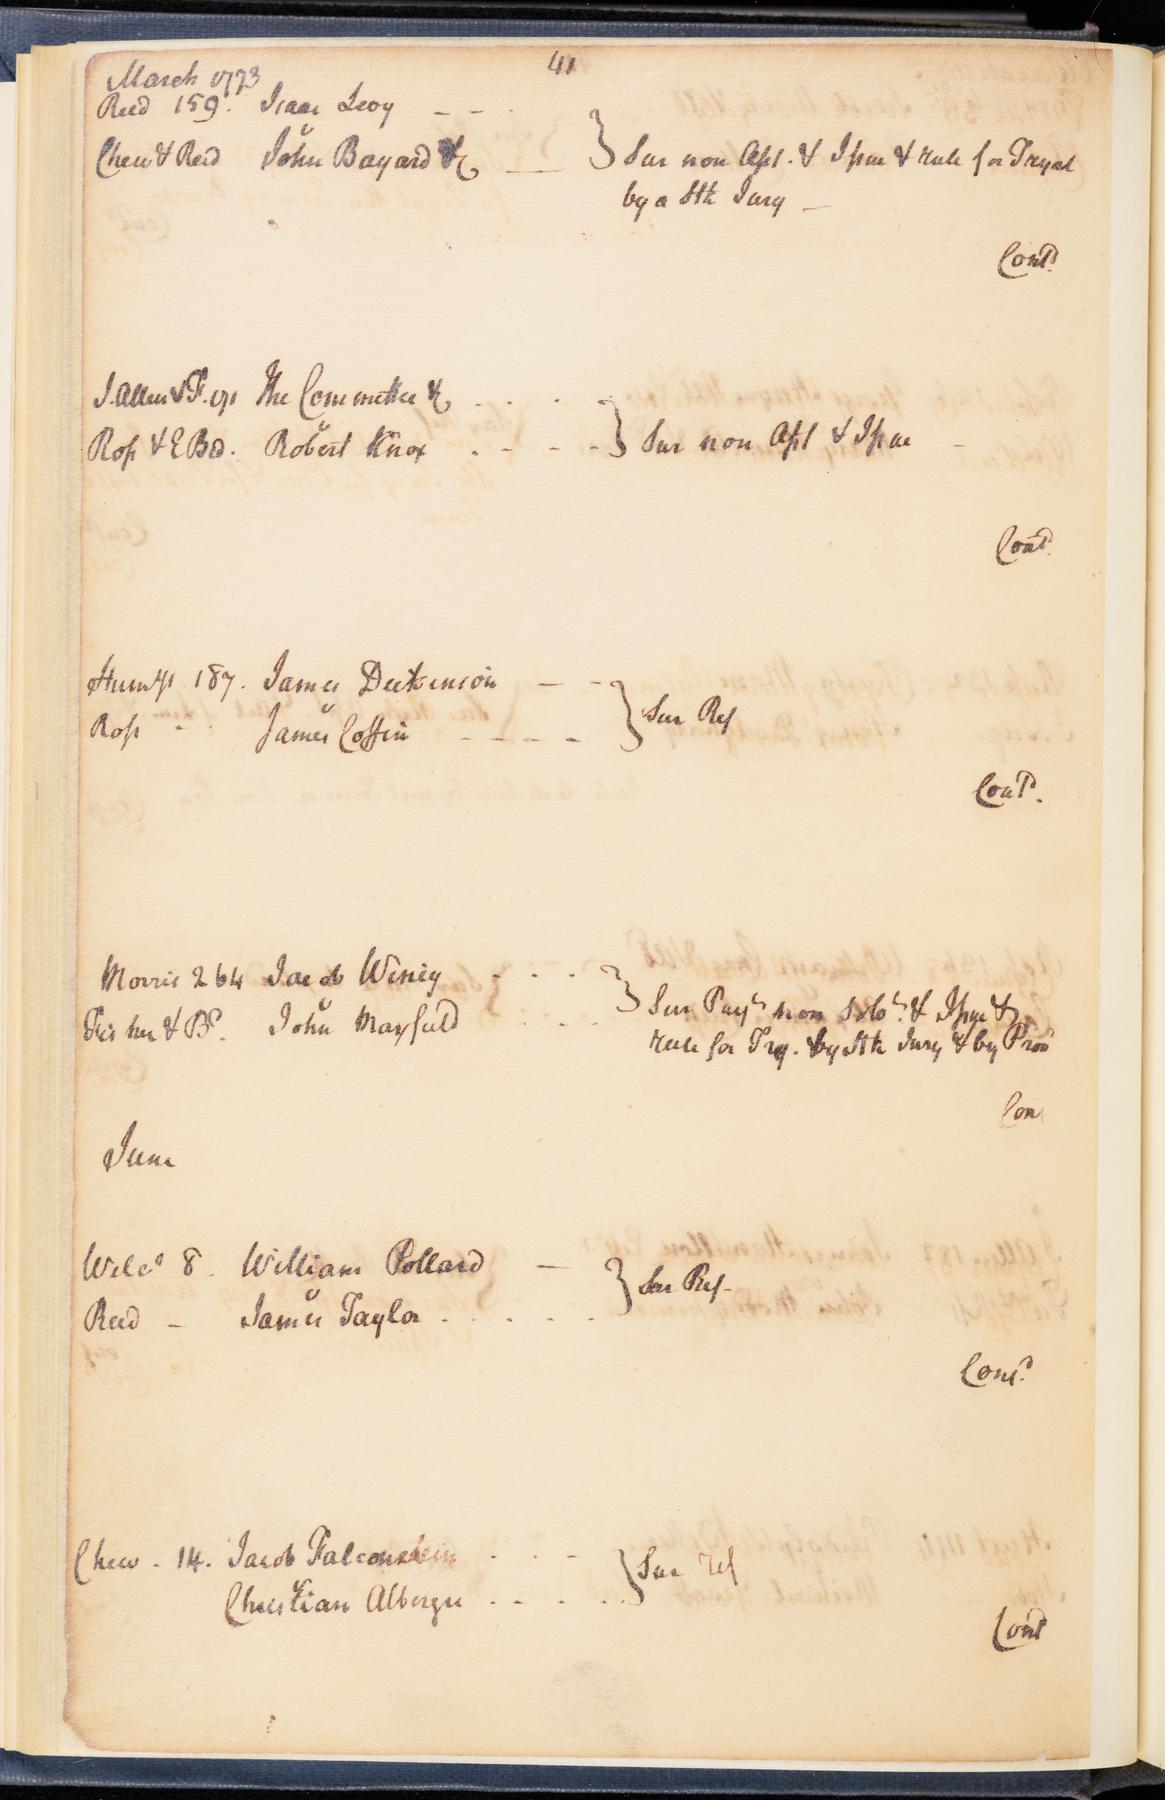 41
March 1773
Reed 159. Isaac Levy - - -
v
Chew & Reed John Bayard &c —
} Sur non Asst. & Issue & rule for Tryal
by a Stk Jury —
Contd.
J. Allen & F. The Committee &c - - -
v
Ross & E Bd. Robert Knox - - - -
} Sur non Asst & Issue -
Contd
Humphs 187. James Dickenson — -
v
Ross - James Coffin - - - -
} Sur Ref
Contd.
Morris 264 Jacob Winey - - -
v
Fisher & Bd. John Mayfield - - -
} Sur Payt non Solvt. & Issue &
rule for Try. by Stk Jury & by Prov
Con
June
Wilcs 8. William Pollard —
v
Reed - James Taylor - - - -
} Sur Ref-
Contd.
Chew - 14. Jacob Falconstein - - -
v
Christian Albergu - - - -
} Sur ref
Contd